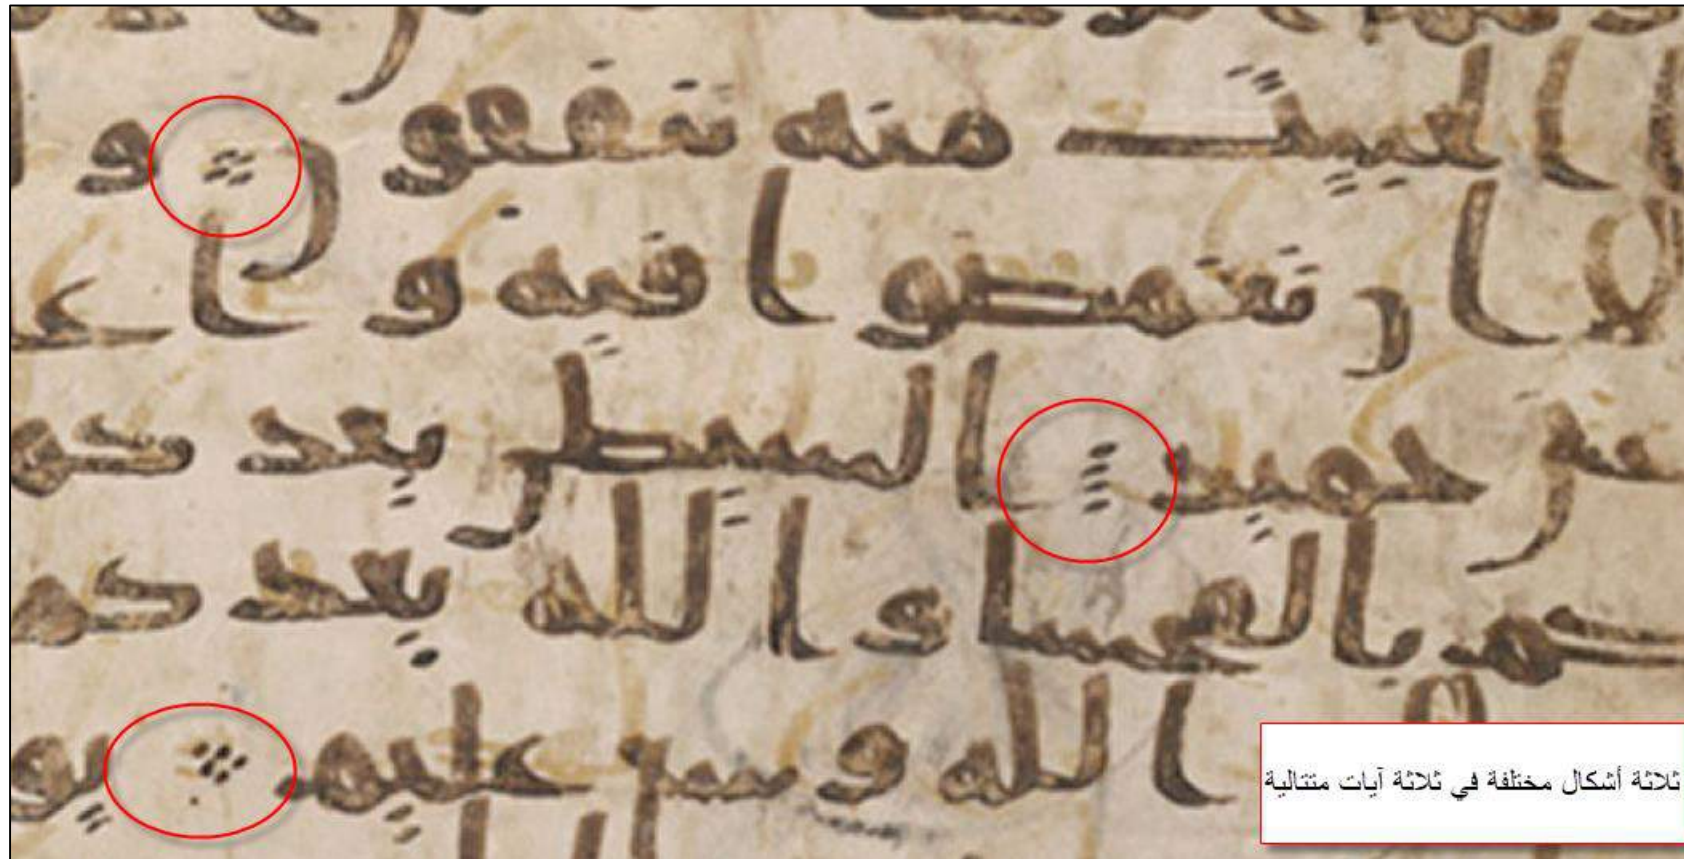 ا الخبيث منه تنفقون و ا
لا ان تغمضوا فيه وا
حميد الشيطن يعد كم
كم بالفحشا والله يعد كم
الله وسع عليم يو
ثلاثة أشكال مختلفة في ثلاثة آيات متتالية